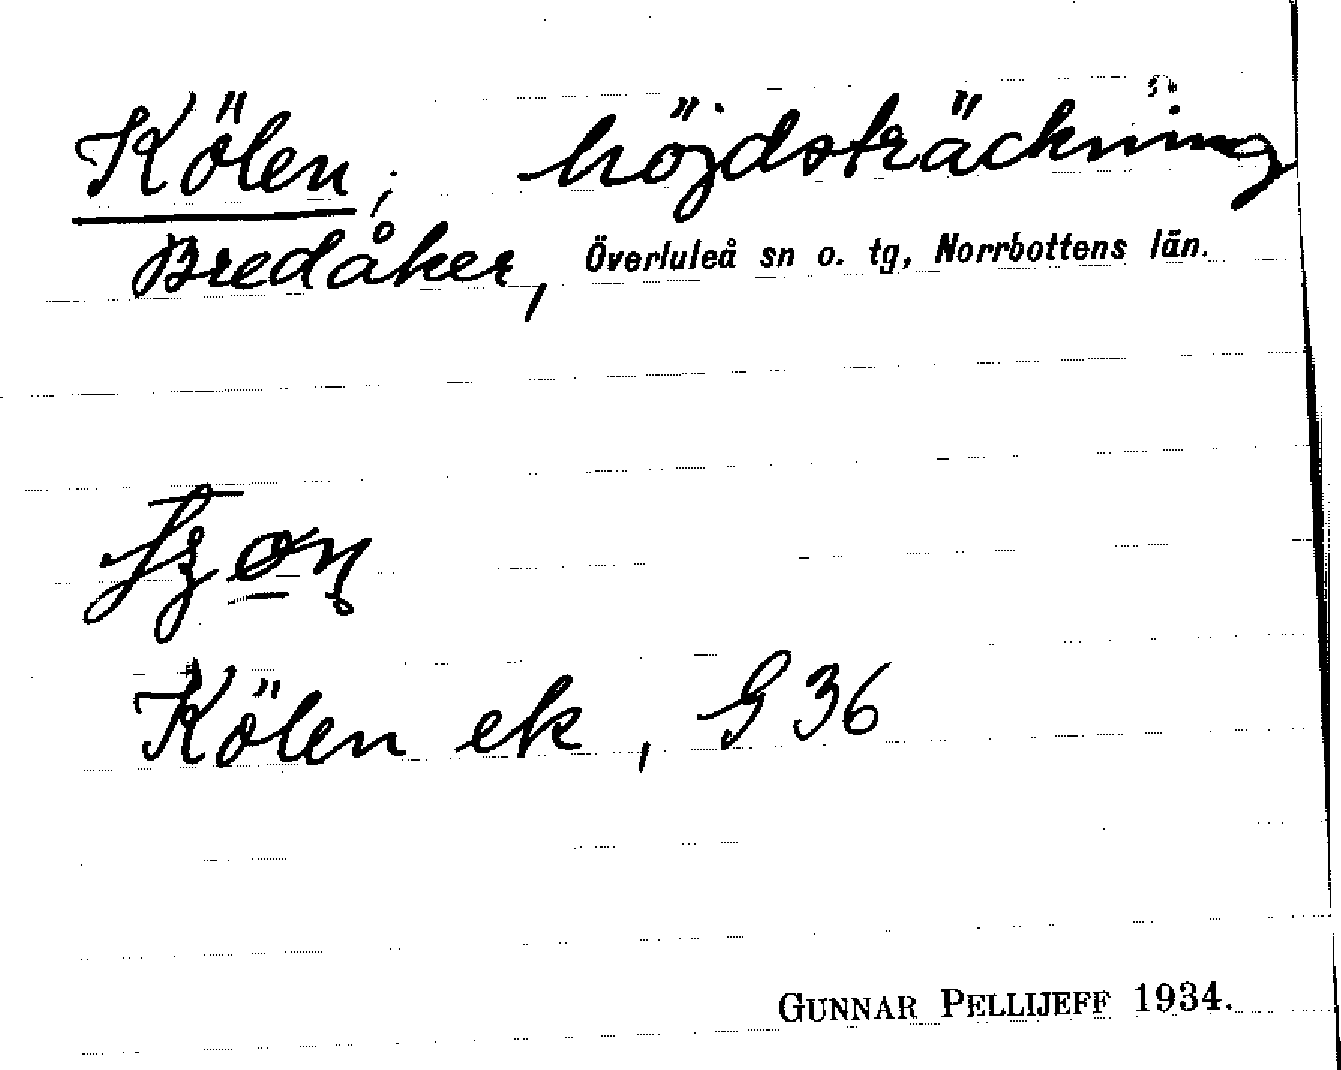 Kölen, höjdsträckning
Bredåker, Överluleå sn o. tg, Norrbottens län.
Kölen ek, G 36
GUNNAR PELLIJEFF 1934.